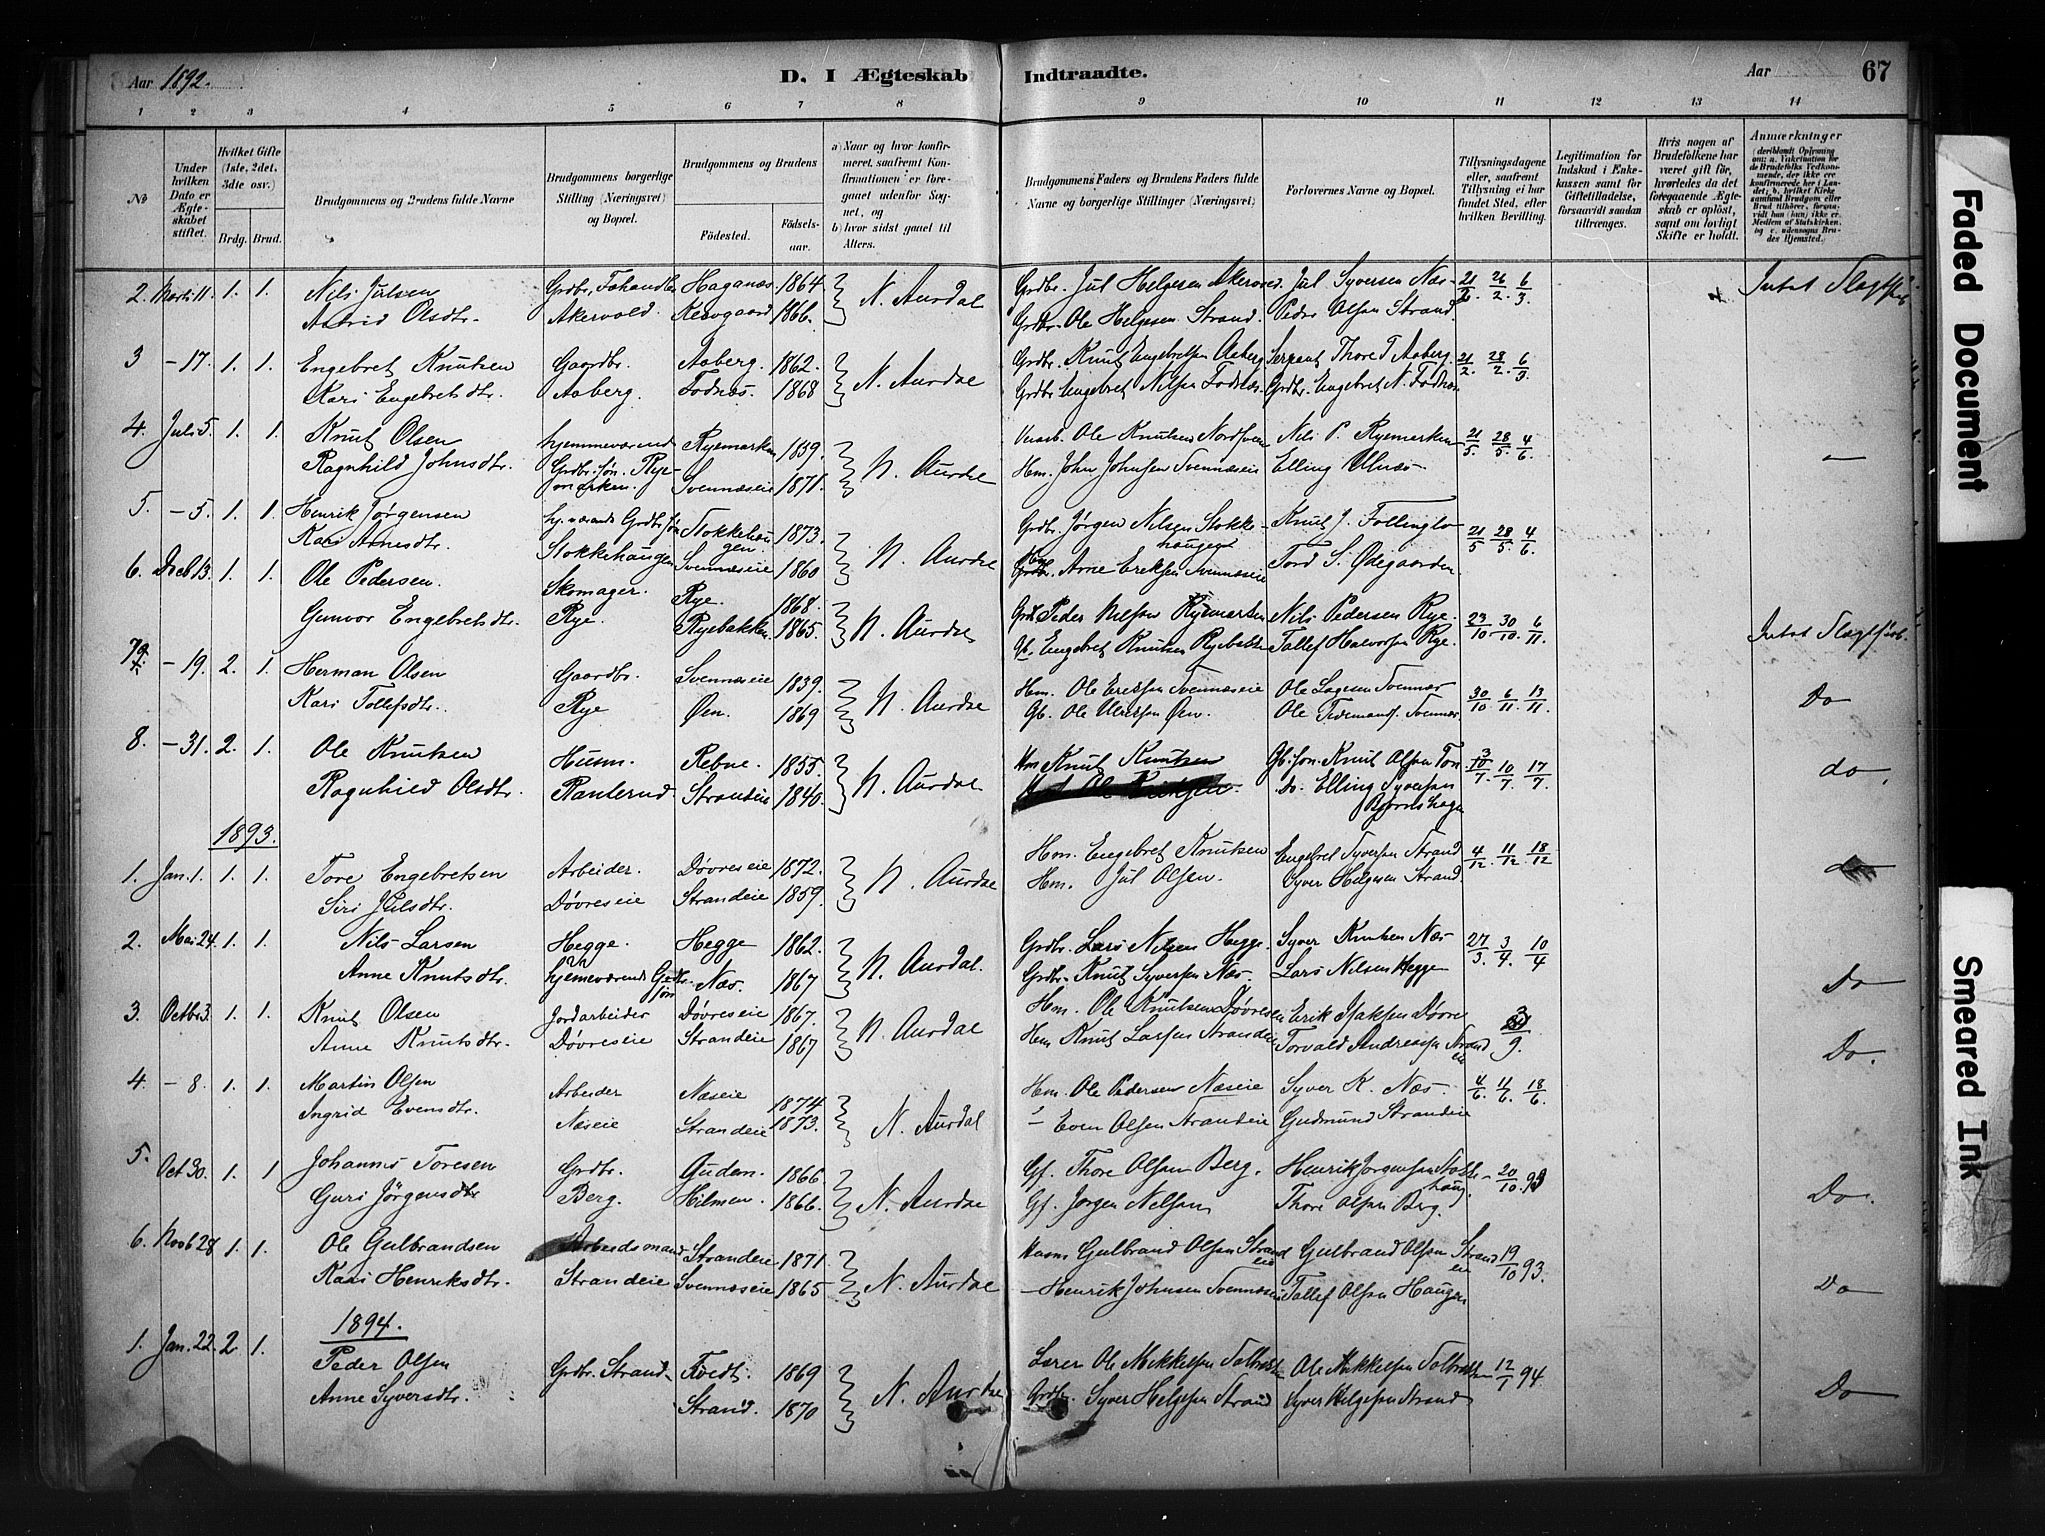 Aar 1892.
D. I Ægteskab Indtraadte.
Aar 67
1 2 3 4 5 6 7 8 9 10 11 12 13 14
No
Under hvilken Dato er Ægteskabet stiftet.
Hvilket Gifte (1ste, 2det, 3dte osv.)
Brdg. Brud.
Brudgommens og Brudens fulde Navne
Brudgommens borgerlige Stilling (Næringsvei) og Bopæl.
Brudgommens og Brudens
Fødested. Fødselsaar.
a) Naar og hvor konfirmeret, saafremt Konfirmationen er foregaaet udenfor Sognet, og
b) hvor sidst gaaet til Alters.
Brudgommens Faders og Brudens Faders fulde Navne og borgerlige Stillinger (Næringsvei)
Forlovernes Navne og Bopæl.
Tillysningsdagene eller, saafremt Tillysning ei har fundet Sted, efter hvilken Bevilling.
Legitimation for Indskud i Enkekassen samt for Giftetilladelse, forsaavidt saadan tiltrænges.
Hvis nogen af Brudefolkene har været gift før, hvorledes da det foregaaende Ægteskab er opløst, samt om lovligt Skifte er holdt.
Anmærkninger
2. Marts 11. 1. 1. Nils Julsen Grdbr. Haganæs 1864 N. Aurdal Grdbr. Jul Helgesen Jul Syversen Næs 21/2 26/2 6/3 Intet Slægtsk.
Astrid Olsdtr. Akervold. 1866. Grdbr. Ole Helgesen Strand. Peder Olsen Strand.
3 - 17. 1. 1. Engebret Knutsen Gaardbr. Aaberg. 1862. N. Aurdal Grdbr. Knut Engebretsen Aaberg Sergeant Thore T. Aaberg. 21/2 28/2 6/3 -
Kari Engebretsdtr. Aaberg. Fodnæs. 1868 Grdbr. Engebret Nilsen Fodnæs. Grdbr. Engebret N. Fodnæs
4. Juli 5. 1. 1. Knut Olsen hjemmeværende Ryemarken 1859. N. Aurdal Ole Knutsen Nils P. Ryemarken 21/5 28/5 4/6 -
Ragnhild Johnsdtr. Grdbr. søn. Ryemarken. Svennæseie 1871. Hm. John Johnsen Svennæseie Elling Ulnæs.
5. - 5. 1. 1. Henrik Jørgensen hj. værende Grdbr. søn Stokkehaugen 1873. N. Aurdal Grdbr. Jørgen Nilsen Stokkehaugen Knut J. Follinglo 21/5 28/5 4/6.
Kari Arnesdtr. Stokkehaugen Svennæseie 1860 Hm. Arne Eriksen Svennæseie Tord S. Ødegaarden.
6. Decb 13. 1. 1. Ole Pedersen. Skomager. Rye. 1868. N. Aurdal Peder Nilsen Ryemarken Nils Pedersen Rye. 23/10 30/10 6/11 Intet Slægtskab.
Gunvor Engebretsdtr. Rye. Ryebakken. 1865. Gb. Engebret Knutsen Ryebakken Tollef Halvorsen Rye.
7. - 19. 2. 1. Herman Olsen Gaardbr. Svennæseie 1839. N. Aurdal Hm. Ole Eriksen Svennæseie Ole Svennæs 30/10 6/11 13/11 Do
Kari Tollefsdtr. Rye Øen. 1869 Gb. Ole Øen. Ole Tidemans. Svennæs
8. - 31. 2. 1. Ole Knutsen Husm. Rebne. 1855. N. Aurdal Hm Knut Knutsen Gb. søn. Knut Olsen 3/7 10/7 17/7 do.
Ragnhild Olsdtr. Ranterud. Strandeie 1840. Do. Elling Syversen Bjørnshagen
1893.
1. Jan. 1. 1. 1. Tore Engebretsen Arbeider. Døvreseie 1872. N. Aurdal Hm. Engebret Knutsen Engebret Syversen Strand 4/12 11/12 18/12 do
Siri Julsdtr. Døvreseie Strandeie 1859. Hm. Jul Olsen. Syver Helgesen Strand.
2. Mai 24. 1. 1. Nils Larsen Hegge. Hegge 1862. N. Aurdal. Grdbr. Lars Nilsen Hegge. Syver Knutsen Næs 27/3 3/4 10/4 Do
Anne Knutsdtr. hjemeværende Grdbr. søn Næs. 1867 Grdbr. Knut Syversen Næs. Lars Nilsen Hegge
3. Octbr 3. 1. 1. Knut Olsen Jordarbeider Døvreseie 1867. N. Aurdal Hm. Ole Knutsen Døvreseie Erik Isaksen Døvre 3/9. Do.
Anne Knutsdtr. Døvreseie Strandeie 1867 Hm Knut Larsen Strandeie Torvald Andreasen Strandeie
4. - 8. 1. 1. Martin Olsen Arbeider Næseie 1874 N. Aurdal Hm. Ole Pedersen Næseie Syver K. Næs. 4/6 11/6 18/6.
Ingrid Evensdtr. Næseie Strandeie 1873. - Even Olsen Strandeie Gudmund Strandeie
5. Oct 30. 1. 1 Johannis Toresen Grdbr. Gudem. 1866. N. Aurdal Gf. Thore Olsen Berg. Henrik Jørgensen Stokkehaug. 20/10 93 Do.
Guri Jørgensdtr Berg. Hilmen. 1866. Gf. Jørgen Nelsen Thore Olsen Berg.
6. Novb 28. 1. 1. Ole Gulbrandsen Arbeidsmand Strandeie 1871 N. Aurdal Husm Gulbrand Olsen Strandeie Gulbrand Olsen Strandeie 19/10 93. Do
Kari Henriksdtr. Strandeie Svennæseie 1865 - Henrik Johnsen Svennæseie Tollef Olsen Haugen
1894.
1. Jan. 22. 2. 1. Peder Olsen Grdbr. Strand. 1869 N. Aurdal Lærer Ole Mikkelsen Ole Mikkelsen 12/1 94. Do
Anne Syversdtr. Strand. 1870 Grdbr. Syver Helgesen Strand Syver Helgesen Strand
Faded Document
Smeared Ink